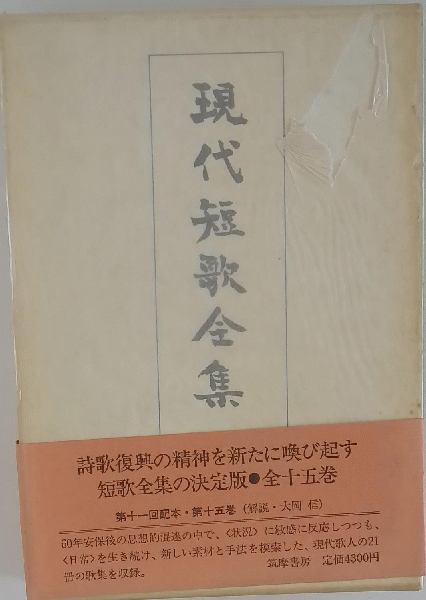 現代短歌全集
詩歌復興の精神を新たに喚び起す
短歌全集の決定版●全十五巻
第十一回配本・第十五巻(解説・大岡信)
60年安保後の思想的混迷の中で、〈状況〉に敏感に反応しつつも、
〈日常〉を生き続け、新しい素材と手法を模索した、現代歌人の21
冊の歌集を収録。
筑摩書房 定価4300円